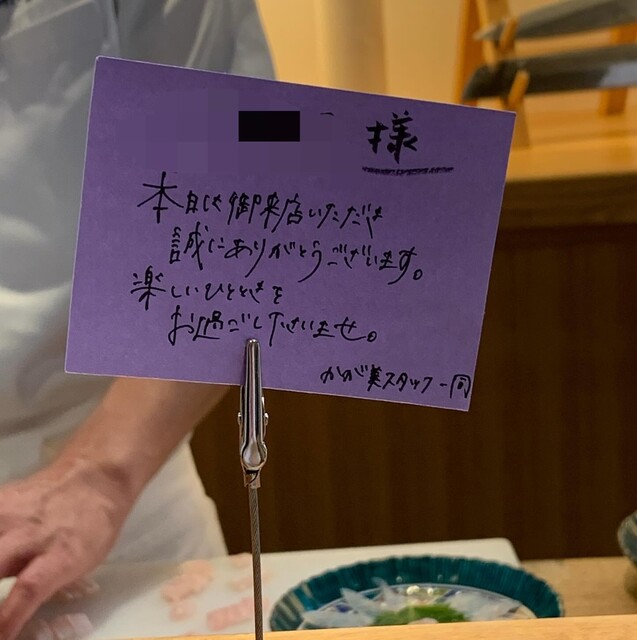 様
本日は御来店いただき
誠にありがとうございます。
楽しいひとときを
お過ごしくださいませ。
かが美スタッフ一同